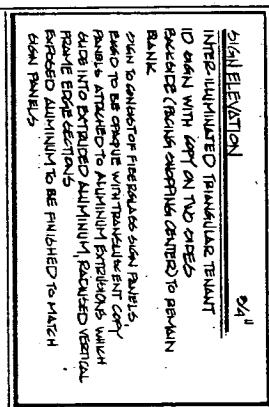 SIGN ELEVATION 3/4"
INTER-ILLUMINATED TRIANGULAR TENANT
ID SIGN WITH COPY ON TWO SIDES
BACKSIDE (FACING SHOPPING CENTER) TO REMAIN
BLANK
SIGN TO CONSIST OF FIBERGLASS SIGN PANELS,
BKGD TO BE OPAQUE WITH TRANSLUCENT COPY
PANELS ATTACHED TO ALUMINUM EXTRUSIONS WHICH
SLIDE INTO EXTRUDED ALUMINUM, RADIUSED VERTICAL
FRAME EDGE SECTIONS
EXPOSED ALUMINUM TO BE FINISHED TO MATCH
SIGN PANELS